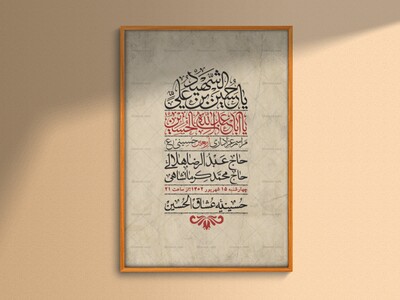 یا حسین بن علی الشهید
یا اباعبدالله الحسین
مراسم عزاداری اربعین حسینی ع
حاج عبدالرضا هلالی
حاج محمد کرمانشاهی
چهارشنبه ۱۵ شهریور ۱۴۰۲ از ساعت ۲۱
حسینیه عشاق الحسین